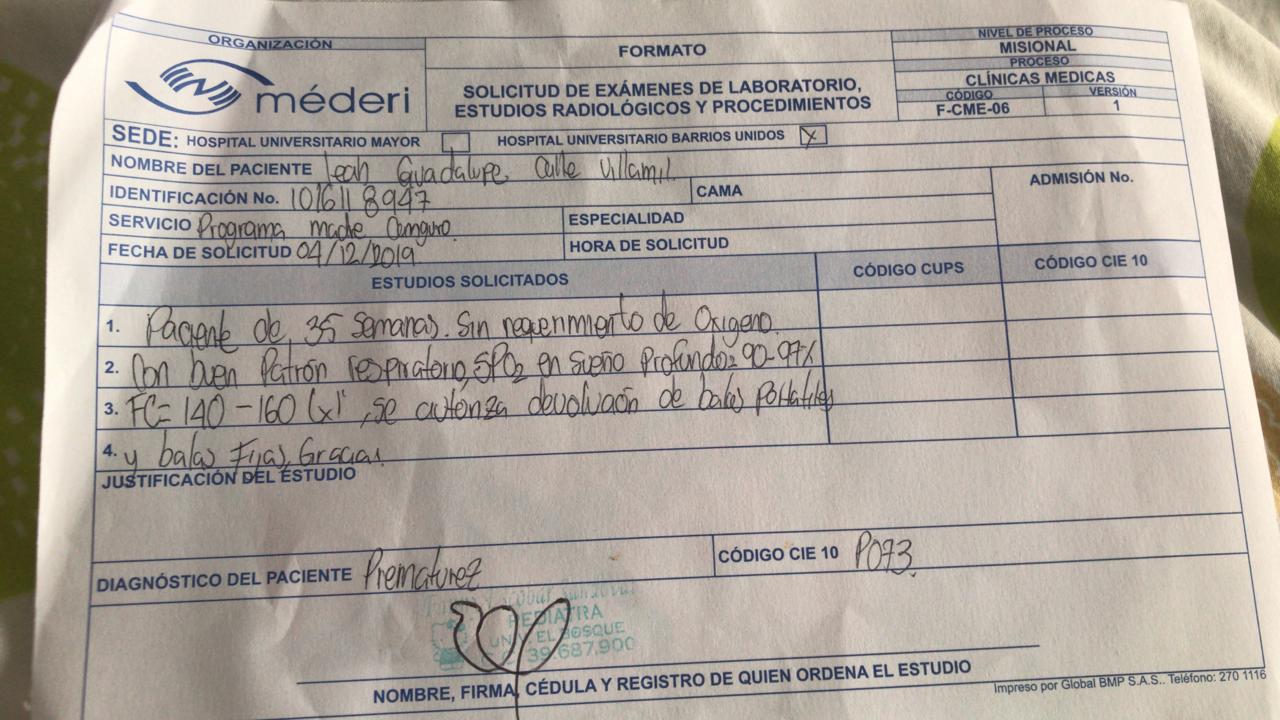 ORGANIZACIÓN
méderi
FORMATO
SOLICITUD DE EXÁMENES DE LABORATORIO,
ESTUDIOS RADIOLÓGICOS Y PROCEDIMIENTOS
NIVEL DE PROCESO
MISIONAL
PROCESO
CLÍNICAS MEDICAS
CÓDIGO VERSIÓN
F-CME-06 1
SEDE: HOSPITAL UNIVERSITARIO MAYOR HOSPITAL UNIVERSITARIO BARRIOS UNIDOS X
NOMBRE DEL PACIENTE Leah Guadalupe Calle Villamil
ADMISIÓN No.
IDENTIFICACIÓN No. 1016118947 CAMA
SERVICIO Programa madre Canguro ESPECIALIDAD
FECHA DE SOLICITUD 04/12/2019 HORA DE SOLICITUD
ESTUDIOS SOLICITADOS CÓDIGO CUPS CÓDIGO CIE 10
1. Paciente de 35 Semanas. Sin requerimiento de Oxigeno.
2. Con buen Patrón respiratorio, SPO2 en sueño Profundo= 90-97%
3. FC= 140-160 (x)', se autoriza devolución de balas Portatiles
4. y balas Fijas, Gracias.
JUSTIFICACIÓN DEL ESTUDIO
DIAGNÓSTICO DEL PACIENTE Prematurez CÓDIGO CIE 10 P073
Escobar
PEDIATRA
UNIV. EL BOSQUE
39.687.900
NOMBRE, FIRMA, CÉDULA Y REGISTRO DE QUIEN ORDENA EL ESTUDIO
Impreso por Global BMP S.A.S.. Teléfono: 270 1116